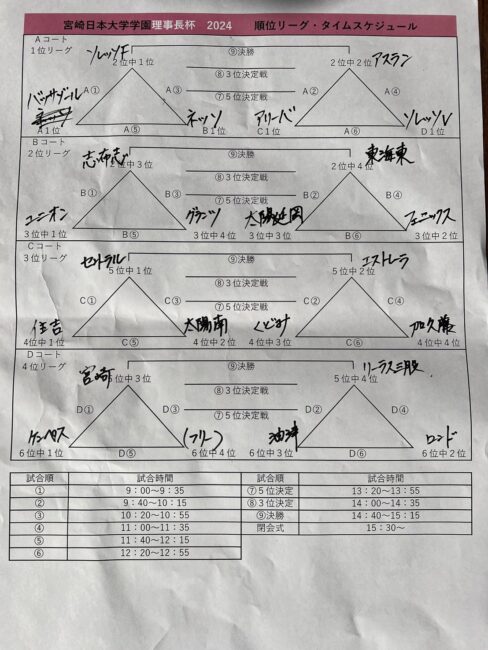 宮崎日本大学学園理事長杯 2024 順位リーグ・タイムスケジュール
Aコート
1位リーグ
ソレッソF
2位中1位
⑨決勝
アスラン
2位中2位
⑧3位決定戦
⑦5位決定戦
A① A③ A② A④
バッサドール
A1位
A⑤
ネッソ
B1位
アリーバ
C1位
A⑥
ソレッソV
D1位
Bコート
2位リーグ
志布志
2位中3位
⑨決勝
東海東
2位中4位
⑧3位決定戦
⑦5位決定戦
B① B③ B② B④
ユニオン
3位中1位
B⑤
グランツ
3位中4位
太陽延岡
3位中3位
B⑥
フェニックス
3位中2位
Cコート
3位リーグ
セントラル
5位中1位
⑨決勝
エストレーラ
5位中2位
⑧3位決定戦
⑦5位決定戦
C① C③ C② C④
住吉
4位中1位
C⑤
太陽南
4位中2位
4位中3位
C⑥
加久藤
4位中4位
Dコート
4位リーグ
宮崎
5位中3位
⑨決勝
リーラス三股
5位中4位
⑧3位決定戦
⑦5位決定戦
D① D③ D② D④
6位中1位
D⑤
(フリー)
6位中4位
油津
6位中3位
D⑥
ロンド
6位中2位
試合順 試合時間 試合順 試合時間
① 9:00~9:35 ⑦5位決定 13:20~13:55
② 9:40~10:15 ⑧3位決定 14:00~14:35
③ 10:20~10:55 ⑨決勝 14:40~15:15
④ 11:00~11:35 閉会式 15:30~
⑤ 11:40~12:15
⑥ 12:20~12:55